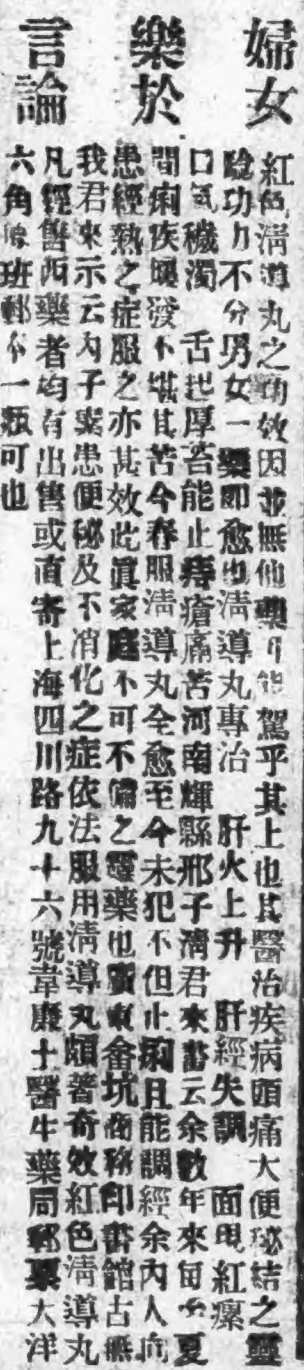 婦女
樂於
言論
紅色淸導丸之功效因並無他藥可能駕乎其上也其醫治疾病頭痛大便秘結之靈
驗功力不分男女一藥即愈也淸導丸專治 肝火上升 肝經失調 面現紅瘰
口氣穢濁 舌起厚苔能止痔瘡痛苦河南輝縣邢子淸君來書云余數年來每夏
間痢疾屢發不堪其苦今春服淸導丸全愈至今未犯不但止痢且能調經余內人
患經熱之症服之亦甚效此眞家庭不可不備之靈藥也廣東畲坑商務印書館古
我君來示云內子患便秘及不消化之症依法服用淸導丸頗著奇效紅色淸導丸
凡經售西藥者均有出售或直寄上海四川路九十六號韋廉士醫生藥局郵票大洋
六角原班郵不一類可也